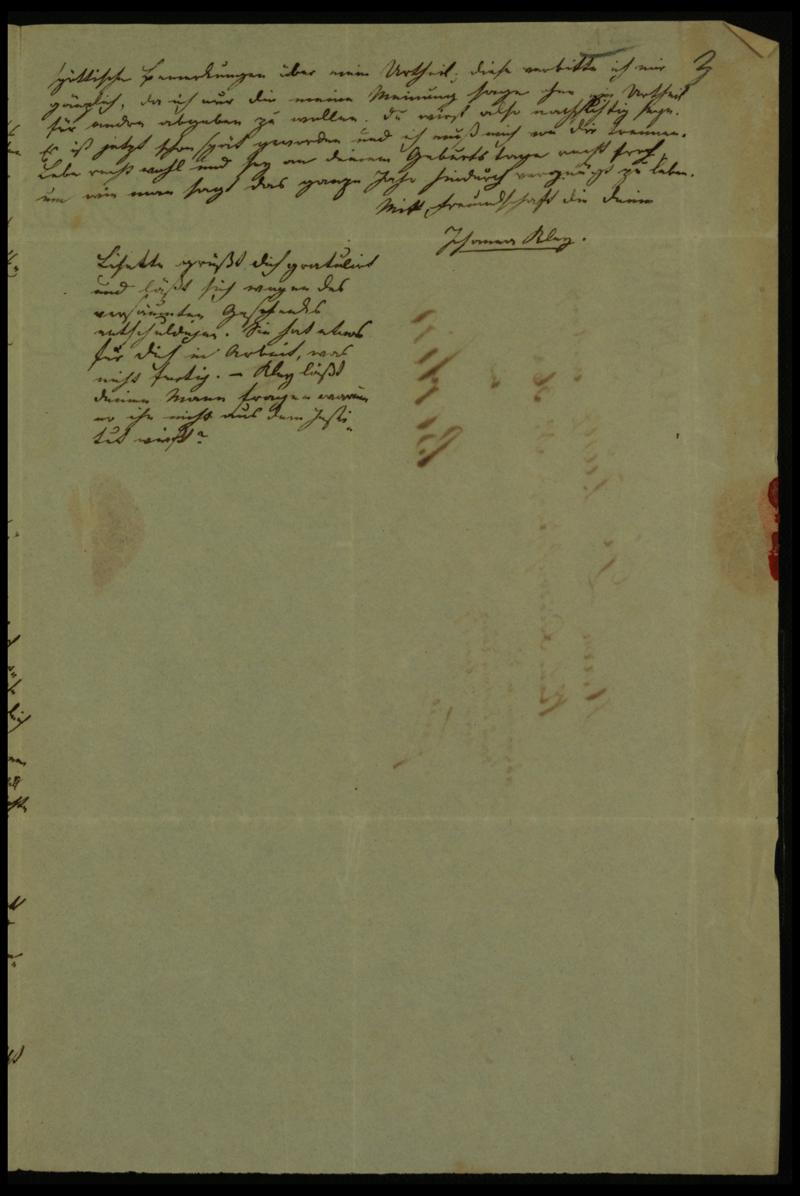 3
spöttische Bemerkungen über mein Urtheil; diese verbitte ich mir
gänzlich, da ich nur die meine Meinung sage ohne ein Urtheil
für andre abgeben zu wollen. Du wirst also nachsichtig seyn.
Es ist jetzt schon spät geworden und ich muß mich von dir trennen.
Lebe recht wohl und sey an deinem Geburtstage recht froh,
um wie man sagt das ganze Jahr hindurch vergnügt zu leben.
Mit Freundschaft die deine
Johanna Kley.
Lisette grüßt dich gratulirt
und läßt sich wegen des
versäumten Geschenkes
entschuldigen. Sie hat etwas
für dich in Arbeit, was
nicht fertig. – Kley läßt
deinen Mann fragen warum
er ihn nicht aus dem Insti-
tut wirft?